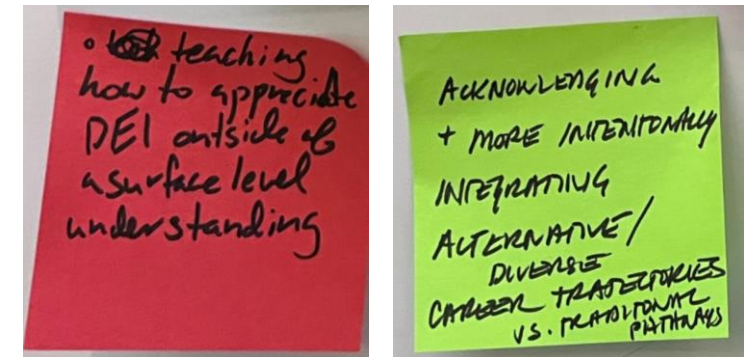 • teaching
how to appreciate
DEI outside of
a surface level
understanding
ACKNOWLEDGING
+ MORE INTENTIONALLY
INTEGRATING
ALTERNATIVE/
DIVERSE
CAREER TRAJECTORIES
VS. TRADITIONAL
PATHWAYS